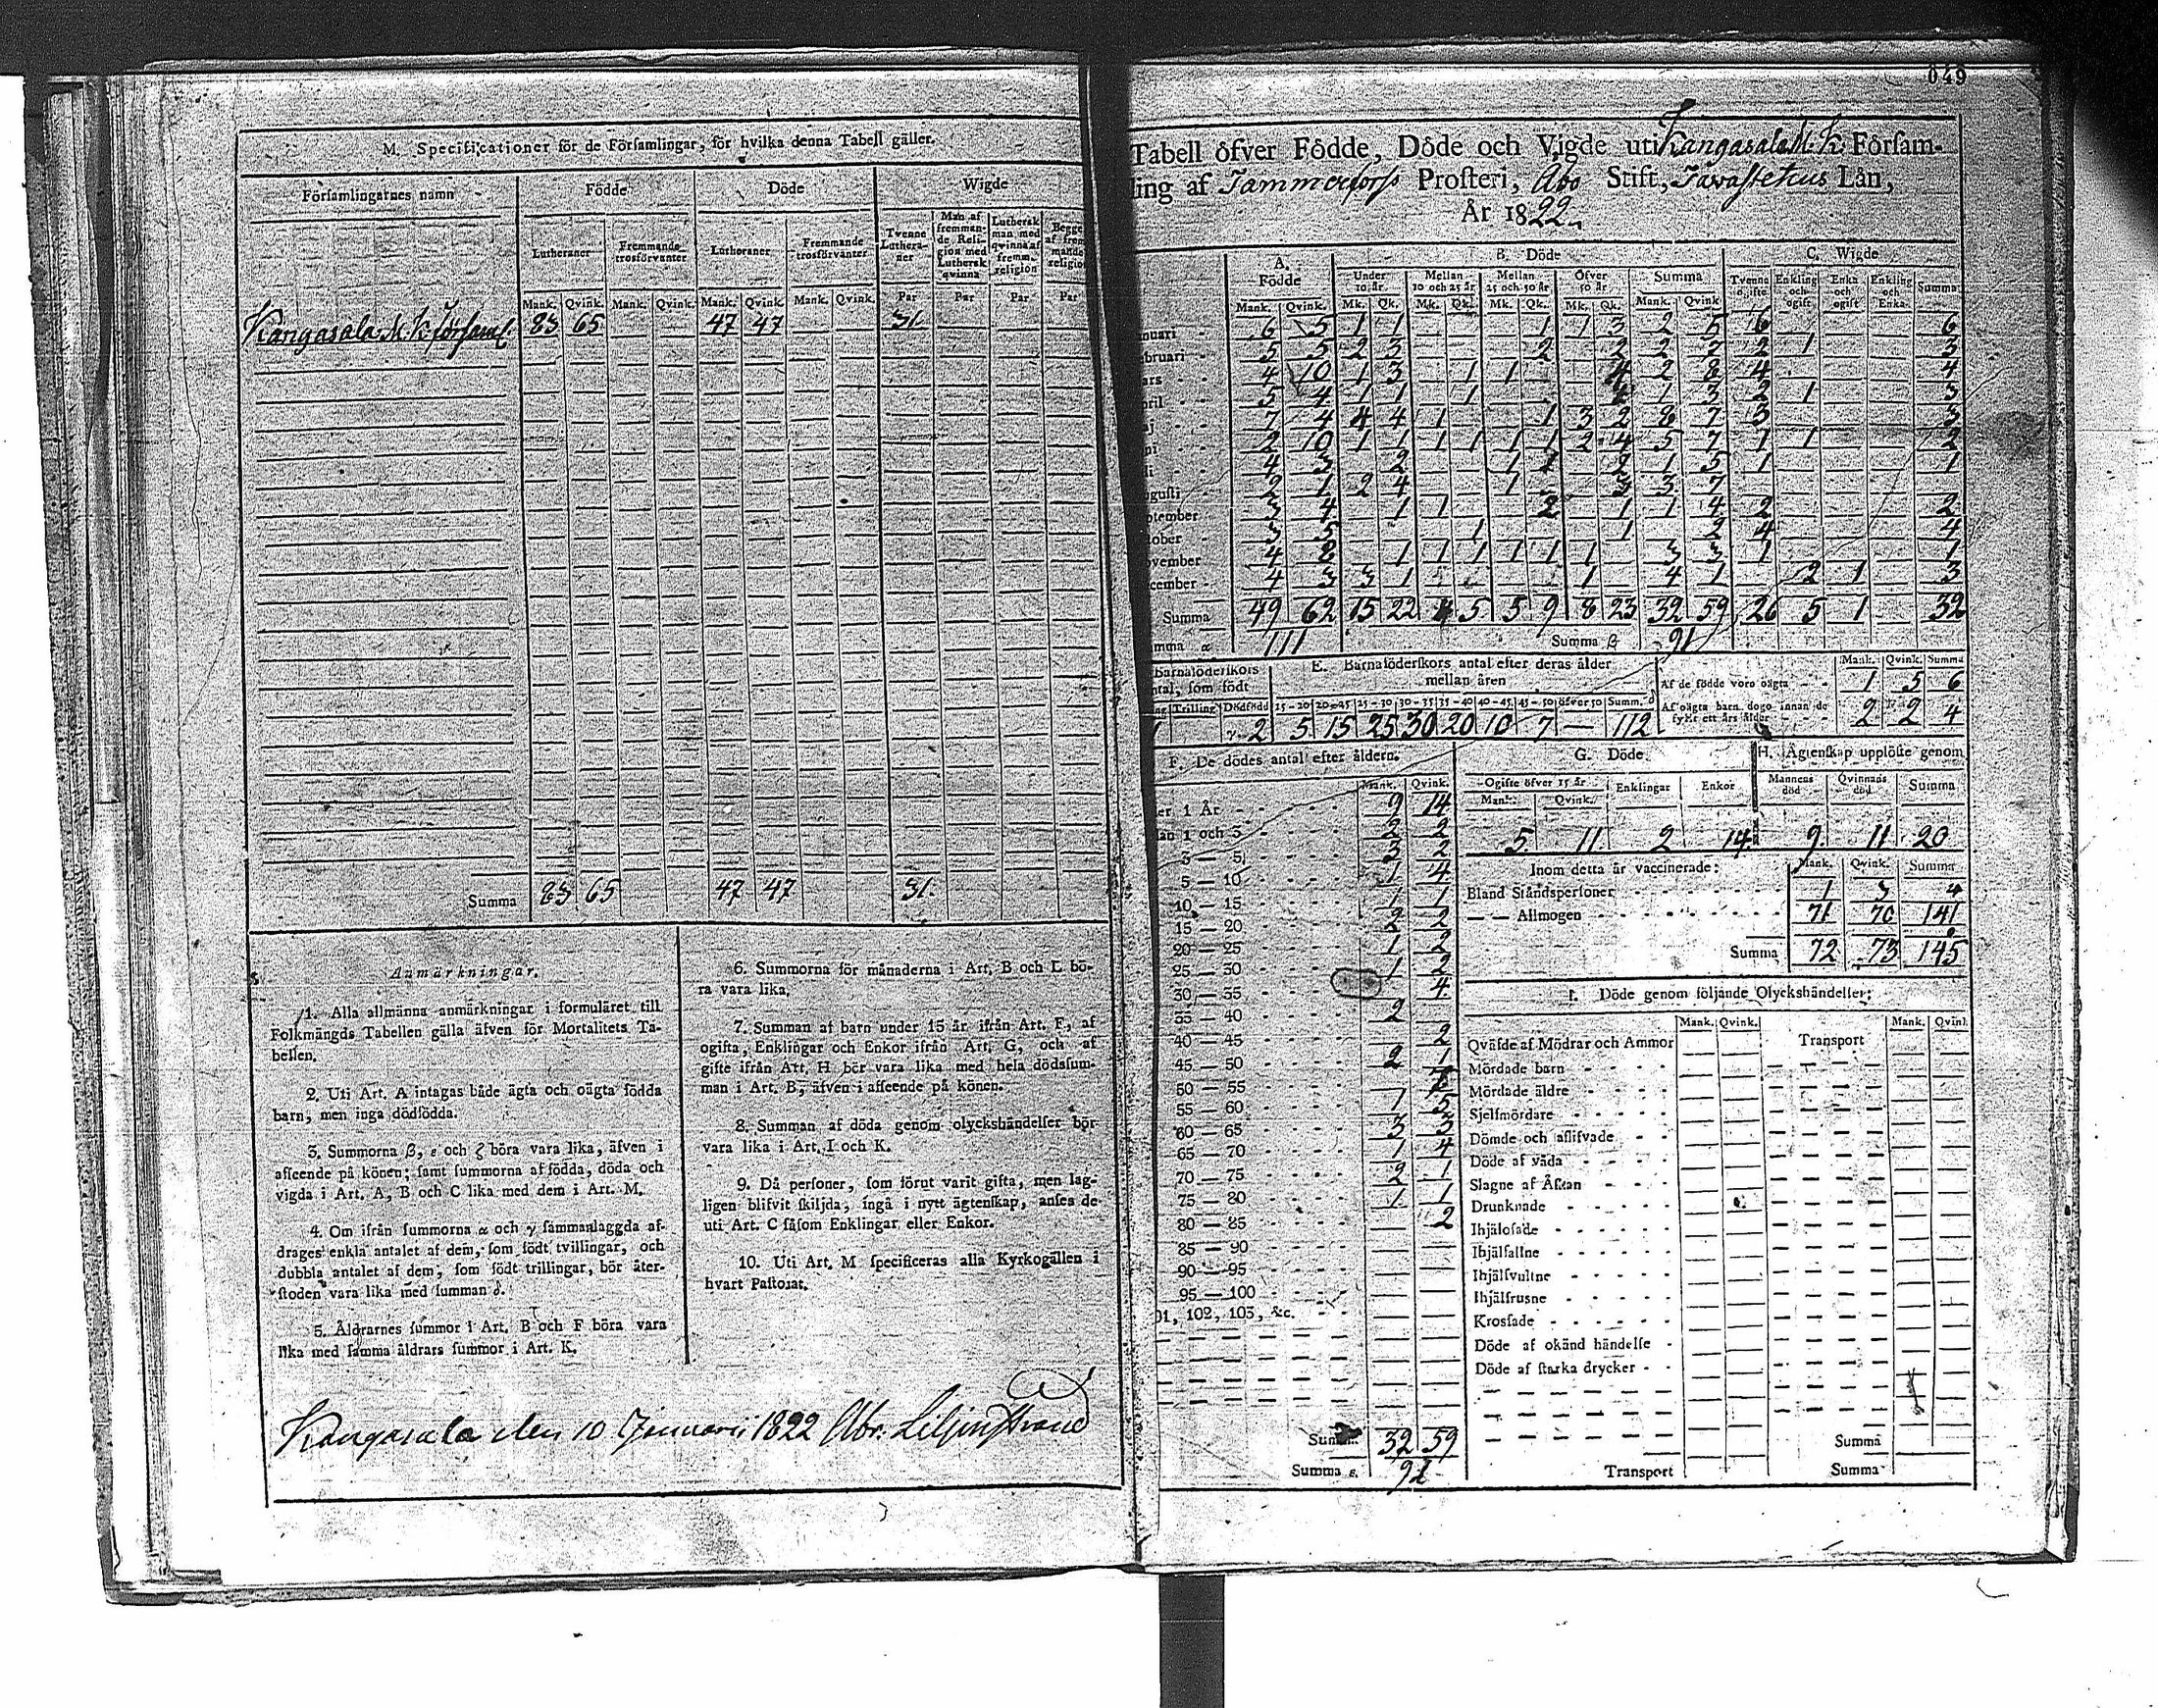 M. Specificationer för de Församlingar, för hvilka denna Tabell gäller.
Församlingarnes namn
Födde
Döde
Wigde
Lutheraner
Fremmande trosförvanter
Lutheraner
Fremmande trosförvanter
Tvenne Lutheraner
Man af fremmande Religion med Luthersk qvinna
Luthersk man med qvinna af fremm. religion
Begge af fremmande religion
Mank. Qvink. Mank. Qvink. Mank. Qvink. Mank. Qvink. Par Par Par Par
Kangasala M. K. församl. 83 65 47 47 31
Summa 83 65 47 47 31
Anmärkningar.
1. Alla allmänna anmärkningar i formuläret till
Folkmängds Tabellen gälla äfven för Mortalitets Ta-
bellen.
2. Uti Art. A intagas både ägta och oägta födda
barn, men inga dödfödda.
3. Summorna β, ε och ζ böra vara lika, äfven i
afseende på könen; samt summorna af födda, döda och
vigda i Art. A, B och C lika med dem i Art. M.
4. Om ifrån summorna α och γ sammanlaggda af-
drages enkla antalet af dem, som födt tvillingar, och
dubbla antalet af dem, som födt trillingar, bör åter-
stoden vara lika med summan δ.
5. Åldrarnes summor i Art. B och F böra vara
lika med samma åldrars summor i Art. K.
6. Summorna för månaderna i Art. B och L bö-
ra vara lika.
7. Summan af barn under 15 år ifrån Art. F., af
ogifta, Enklingar och Enkor ifrån Art. G, och af
gifte ifrån Art. H bör vara lika med hela dödssum-
man i Art. B, äfven i afseende på könen.
8. Summan af döda genom olyckshändelser bör
vara lika i Art. I och K.
9. Då personer, som förut varit gifta, men lag-
ligen blifvit skiljda, ingå i nytt ägtenskap, anses de
uti Art. C såsom Enklingar eller Enkor.
10. Uti Art. M specificeras alla Kyrkogällen i
hvart Pastorat.
Kangasala den 10 Januarii 1822 Abr. Liljenstrand
049
Tabell öfver Födde, Döde och Vigde uti Kangasala M. K. Försam-
ling af Tammerfors Prosteri, Åbo Stift, Tavastehus Län,
År 1822.
A. Födde
B. Döde
C. Wigde
Under 10 år.
Mellan 10 och 25 år
Mellan 25 och 50 år
Öfver 50 år
Summa
Tvenne ogifte
Enkling och ogift
Enka och ogift
Enkling och Enka
Summa
Mank. Qvink. Mk. Qk. Mk. Qk. Mk. Qk. Mk. Qk. Mank. Qvink
nuari 6 5 1 1 1 1 3 2 5 6 6
bruari 5 5 2 3 2 2 2 7 2 1 3
ars 4 10 1 3 1 1 4 2 8 4 4
pril 5 4 1 1 1 1 3 2 1 3
aj 7 4 4 4 1 1 3 2 8 7 3 3
ni 2 10 1 1 1 1 1 1 2 4 5 7 1 1 2
li 4 3 2 1 1 5 1 1
gusti 2 1 2 4 1 3 3 7
ptember 3 4 1 1 2 1 1 4 2 2
tober 3 5 1 1 2 4 4
ovember 4 8 1 1 1 1 1 1 3 3 1 1
ecember 4 3 3 1 1 4 1 2 1 3
Summa 49 62 15 22 4 5 5 9 8 23 32 59 26 5 1 32
mma α 111 Summa β 91
Barnsföderskors
ntal, som födt
Trilling Dödfödd
1 2
E. Barnaföderskors antal efter deras ålder
mellan åren
15-20 20-25 25-30 30-35 35-40 40-45 45-50 öfver 50 Summ. δ
5 15 25 30 20 10 7 — 112
Mank. Qvink. Summa
Af de födde voro oägta 1 5 6
Af oägta barn dogo innan de
fyllt ett års ålder 2 2 4
F. De dödes antal efter åldern.
Mank. Qvink.
er 1 År 9 14
an 1 och 3 2 2
3 — 5 3 2
5 — 10 1 4
10 — 15 1 1
15 — 20 2 2
20 — 25 1 2
25 — 30 1 2
30 — 35 4
35 — 40 2
40 — 45 2
45 — 50 2 1
50 — 55
55 — 60 1 5
60 — 65 3 3
65 — 70 1 4
70 — 75 2 1
75 — 80 1 1
80 — 85 2
85 — 90
90 — 95
95 — 100
01, 102, 103, &c.
Summa 32 59
Summa ε. 91
G. Döde
Ogifte öfver 15 år
Enklingar
Enkor
Mank. Qvink.
5 11 2 14
H. Ägtenskap upplöste genom
Mannens död
Qvinnans död
Summa
9 11 20
Inom detta år vaccinerade:
Mank. Qvink. Summa
Bland Ståndspersoner 1 3 4
— — Allmogen 71 70 141
Summa 72 73 145
I. Döde genom följande Olyckshändelser:
Mank. Qvink. Mank. Qvink.
Qväfde af Mödrar och Ammor
Transport
Mördade barn
Mördade äldre
Sjelfmördare
Dömde och aflifvade
Döde af våda
Slagne af Åskan
Drunknade
Ihjälosade
Ihjälfallne
Ihjälsvultne
Ihjälfrusne
Krossade
Döde af okänd händelse
Döde af starka drycker
Summa
Transport
Summa